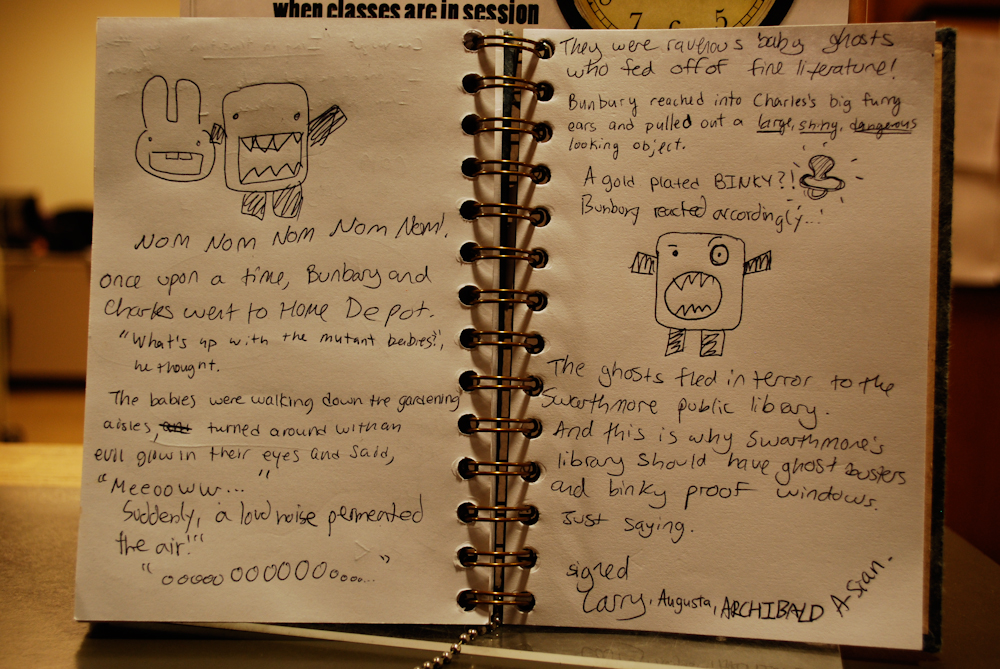 when classes are in session
7 6 5
NOM NOM NOM NOM NOM!
once upon a time, Bunbury and
Charles went to Home Depot.
"What's up with the mutant babies?",
he thought.
The babies were walking down the gardening
aisles, turned around with an
evil glow in their eyes and said,
"Meeooww... "
Suddenly, a loud noise permeated
the air!"
"ooooooOOOOOoooo..."
They were ravenous baby ghosts
who fed off of fine literature!
Bunbury reached into Charles's big furry
ears and pulled out a large, shiny, dangerous
looking object.
A gold plated BINKY?!
Bunbury reacted accordingly...
The ghosts fled in terror to the
Swarthmore public library.
And this is why Swarthmore's
library should have ghost busters
and binky proof windows.
Just saying.
signed
Larry, Augusta, ARCHIBALD A-Sian.